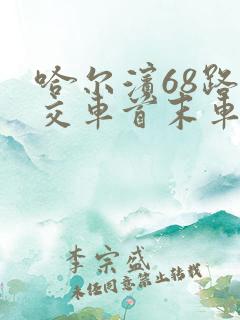 哈尔滨68路
交车首末车
李宗盛
未经同意禁止转载